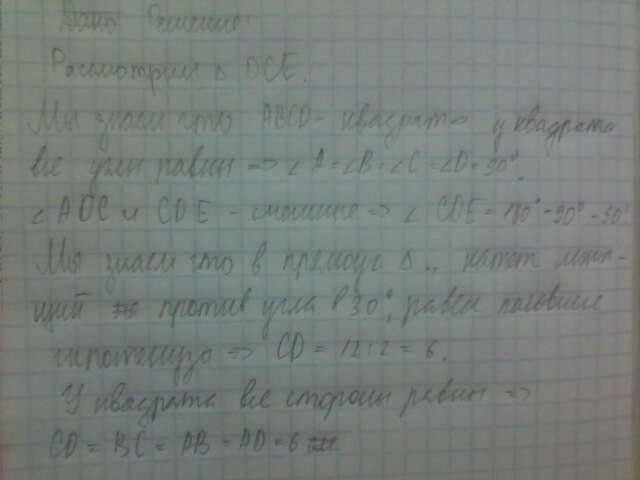 Решение:
Рассмотрим Δ DCE.
Мы знаем что ABCD - квадрат, у квадрата
все углы равны => ∠A=∠B=∠C=∠D=90°.
∠ADC и CDE - смежные => ∠CDE=180°-90°=90°
Мы знаем что в прямоуг Δ, катет лежа-
щий против угла в 30°, равен половине
гипотенузы => CD = 12:2 = 6.
У квадрата все стороны равны =>
CD = BC = AB = AD = 6